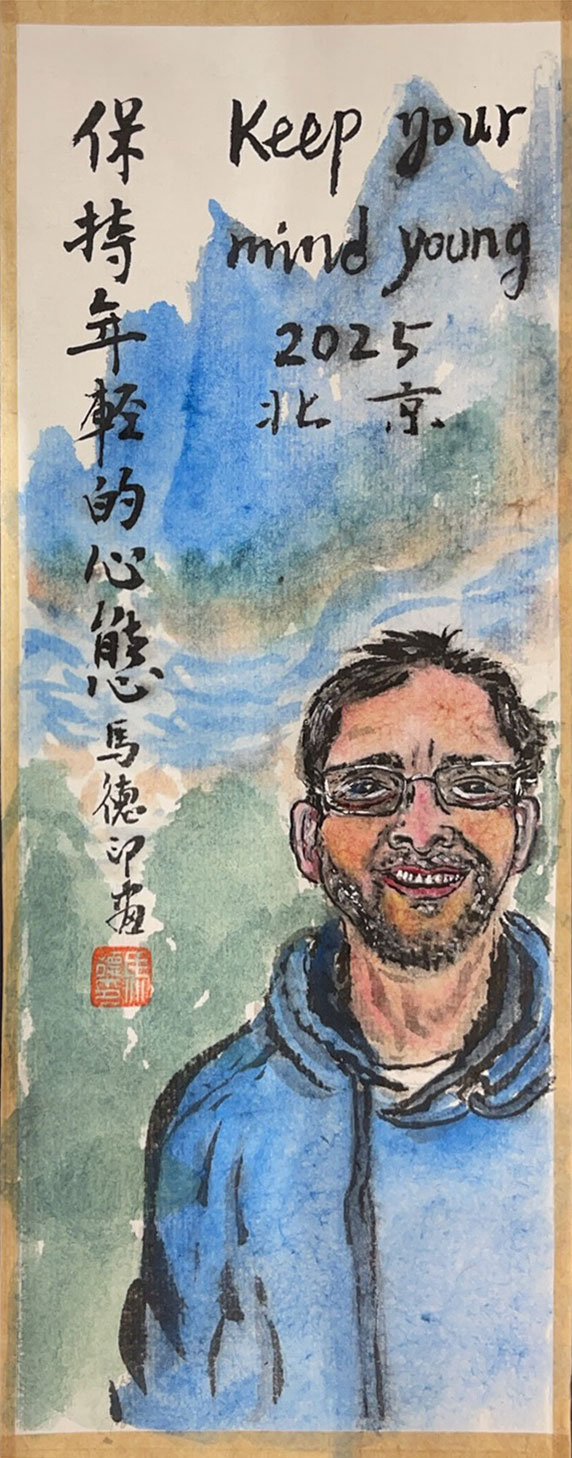 保持年輕的心態 馬德印畫
Keep your
mind young
2025
北京